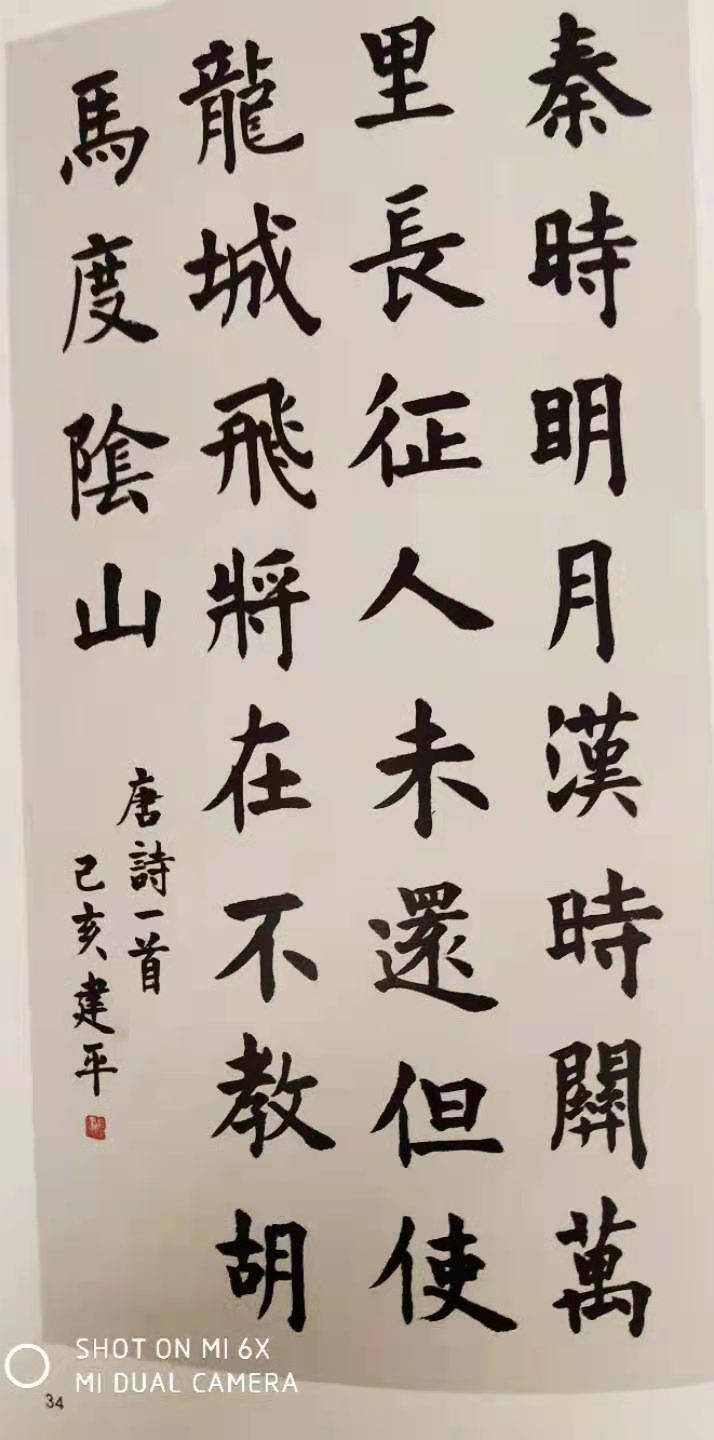 秦時明月漢時關萬
里長征人未還但使
龍城飛將在不教胡
馬度陰山
唐詩一首
己亥建平
SHOT ON MI 6X
MI DUAL CAMERA
34